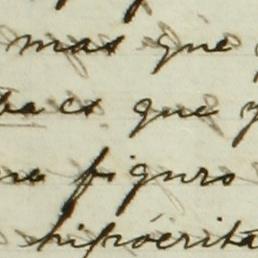 mas que
que y
figuro
hipócrita